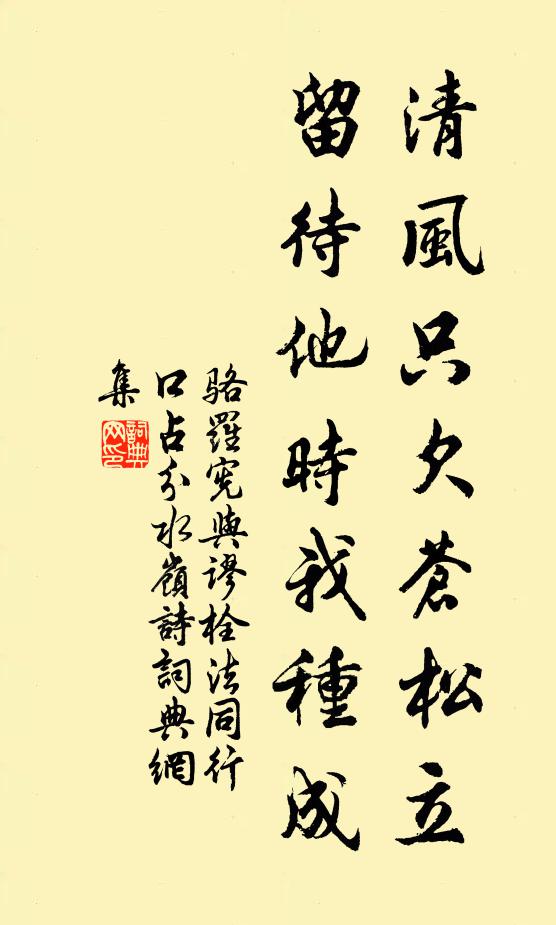 清風只欠蒼松立
留待他時我種成
駱羅憲與謬栓法同行
口占分水嶺詩詞典網
集
詞典
网印